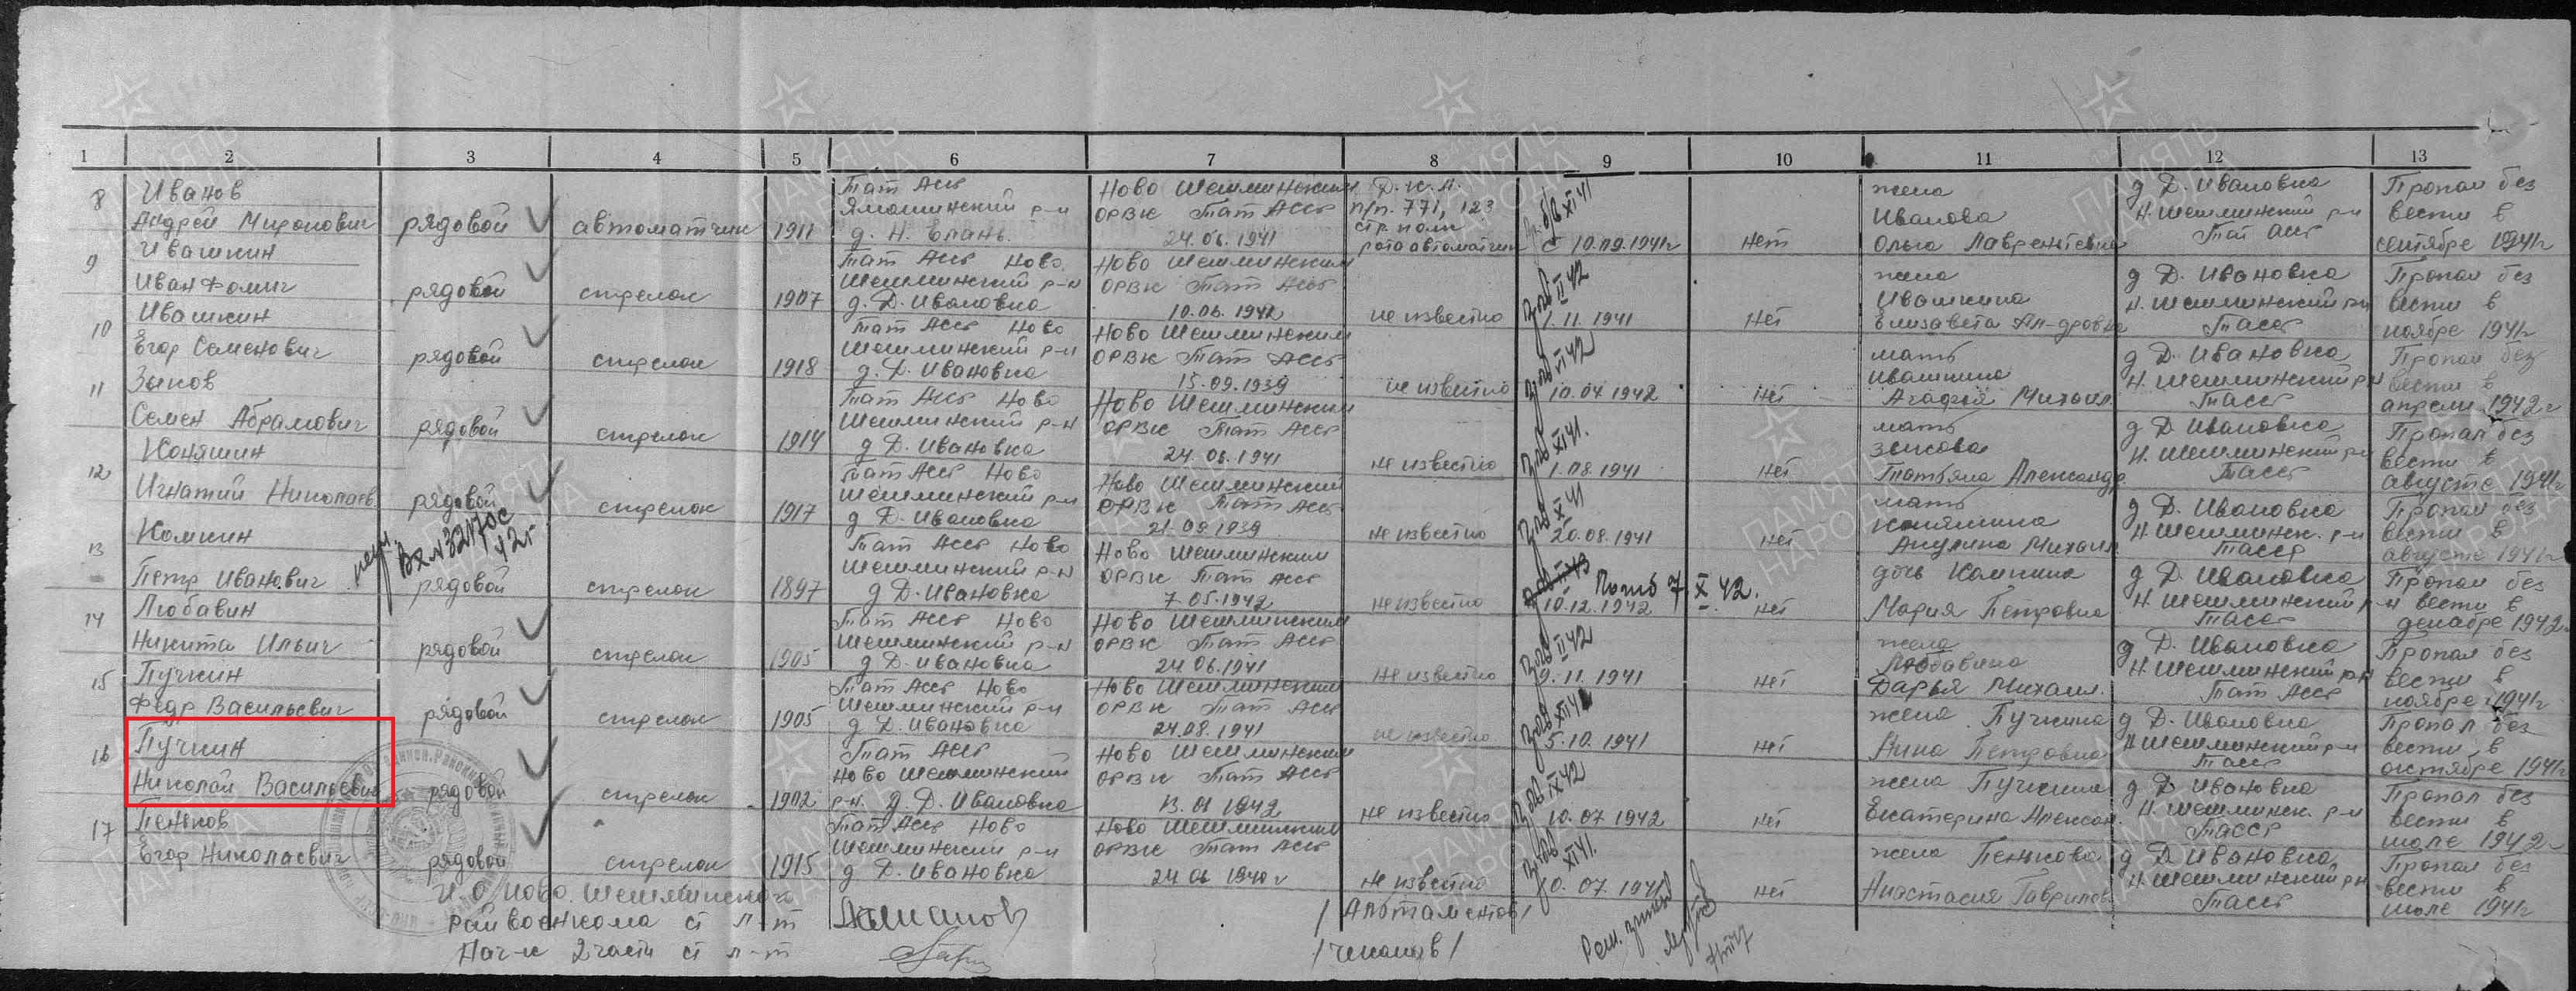 1 2 3 4 5 6 7 8 9 10 11 12 13
8 Иванов
Андрей Миронович рядовой автоматчик 1911
Тат Асср
Ямашинский р-н
д. Н. Елань.
Ново Шешминским
ОРВК Тат Асср
24.06.1941
Д.К.А.
п/п. 771, 123
стр. полк
рота автоматчик
10.09.1941г нет
жена
Иванова
Ольга Лаврентевна
д Д. Ивановка
Н. Шешминский р-н
Тат Асср
Пропал без
вести в
сентябре 1941г
9 Ивашкин
Иван Фомич рядовой стрелок 1907
Тат Асср Ново
Шешминский р-н
д. Д. Ивановка
Ново Шешминским
ОРВК Тат Асср
10.06.1941
не известно
1.11.1941 нет
жена
Ивашкина
Елизавета Ал-дровна
д Д. Ивановка
Н. Шешминский р-н
Тасср
Пропал без
вести в
ноябре 1941г
10 Ивашкин
Егор Семенович рядовой стрелок 1918
Тат Асср Ново
Шешминский р-н
д. Д. Ивановка
Ново Шешминским
ОРВК Тат Асср
15.09.1939
не известно
10.04.1942 нет
мать
Ивашкина
Агафья Михаил.
д Д. Ивановка
Н. Шешминский р-н
Тасср
Пропал без
вести в
апреле 1942г
11 Зыков
Семен Абрамович рядовой стрелок 1914
Тат Асср Ново
Шешминский р-н
д Д. Ивановка
Ново Шешминским
ОРВК Тат Асср
24.06.1941
не известно
1.08.1941 нет
мать
Зыкова
Татьяна Александр.
д Д. Ивановка
Н. Шешминский р-н
Тасср
Пропал без
вести в
августе 1941г
12 Коняшин
Игнатий Николаев рядовой стрелок 1917
Тат Асср Ново
Шешминский р-н
д Д. Ивановка
Ново Шешминский
ОРВК Тат Асср
21.09.1939
не известно
20.08.1941 нет
мать
Коняшина
Акулина Михаил
д Д. Ивановка
Н. Шешминск. р-н
Тасср
Пропал без
вести в
августе 1941г
13 Комкин
Петр Иванович рядовой стрелок 1897
Вх №32170с
42г
Тат Асср Ново
Шешминский р-н
д Д. Ивановка
Ново Шешминским
ОРВК Тат Асср
7.05.1942
не известно
10.12.1942 нет
Погиб 7.X.42.
дочь Комкина
Мария Петровна
д Д. Ивановка
Н. Шешминский р-н
Тасср
Пропал без
вести в
декабре 1942г
14 Любавин
Никита Ильич рядовой стрелок 1905
Тат Асср Ново
Шешминский р-н
д Д. Ивановка
Ново Шешминским
ОРВК Тат Асср
24.06.1941
не известно
9.11.1941 нет
жена
Любавина
Дарья Михаил.
д Д. Ивановка
Н. Шешминский р-н
Тат Асср
Пропал без
вести в
ноябре 1941г
15 Пучкин
Федр Васильевич рядовой стрелок 1905
Тат Асср Ново
Шешминский р-н
д Д. Ивановка
Ново Шешминским
ОРВК Тат Асср
24.08.1941
не известно
5.10.1941 нет
жена Пучкина
Нина Петровна
д Д. Ивановка
Н Шешминский р-н
Тасср
Пропал без
вести в
октябре 1941г
16 Пучкин
Николай Васильевич рядовой стрелок 1902
Тат Асср
Ново Шешминский
р-н. д. Д. Ивановка
Ново Шешминским
ОРВК Тат Асср
13.01 1942
не известно
10.07 1942 нет
жена Пучкина
Екатерина Алексан.
д Д. Ивановка
Н. Шешминск. р-н
Тасср
Пропал без
вести в
июле 1942г
17 Пеньков
Егор Николаевич рядовой стрелок 1915
Тат Асср Ново
Шешминский р-н
д Д. Ивановка
Ново Шешминским
ОРВК Тат Асср
24 06 1941г
не известно
10.07 1941 нет
жена Пенькова
Анастасия Гаврилов.
д Д. Ивановка
Н. Шешминский р-н
Тасср
Пропал без
вести в
июле 1941г
И.О. Ново. Шешминского
Райвоенкома ст л-т
Нач-к 2 части ст л-т
ПАМЯТЬ
НАРОДА